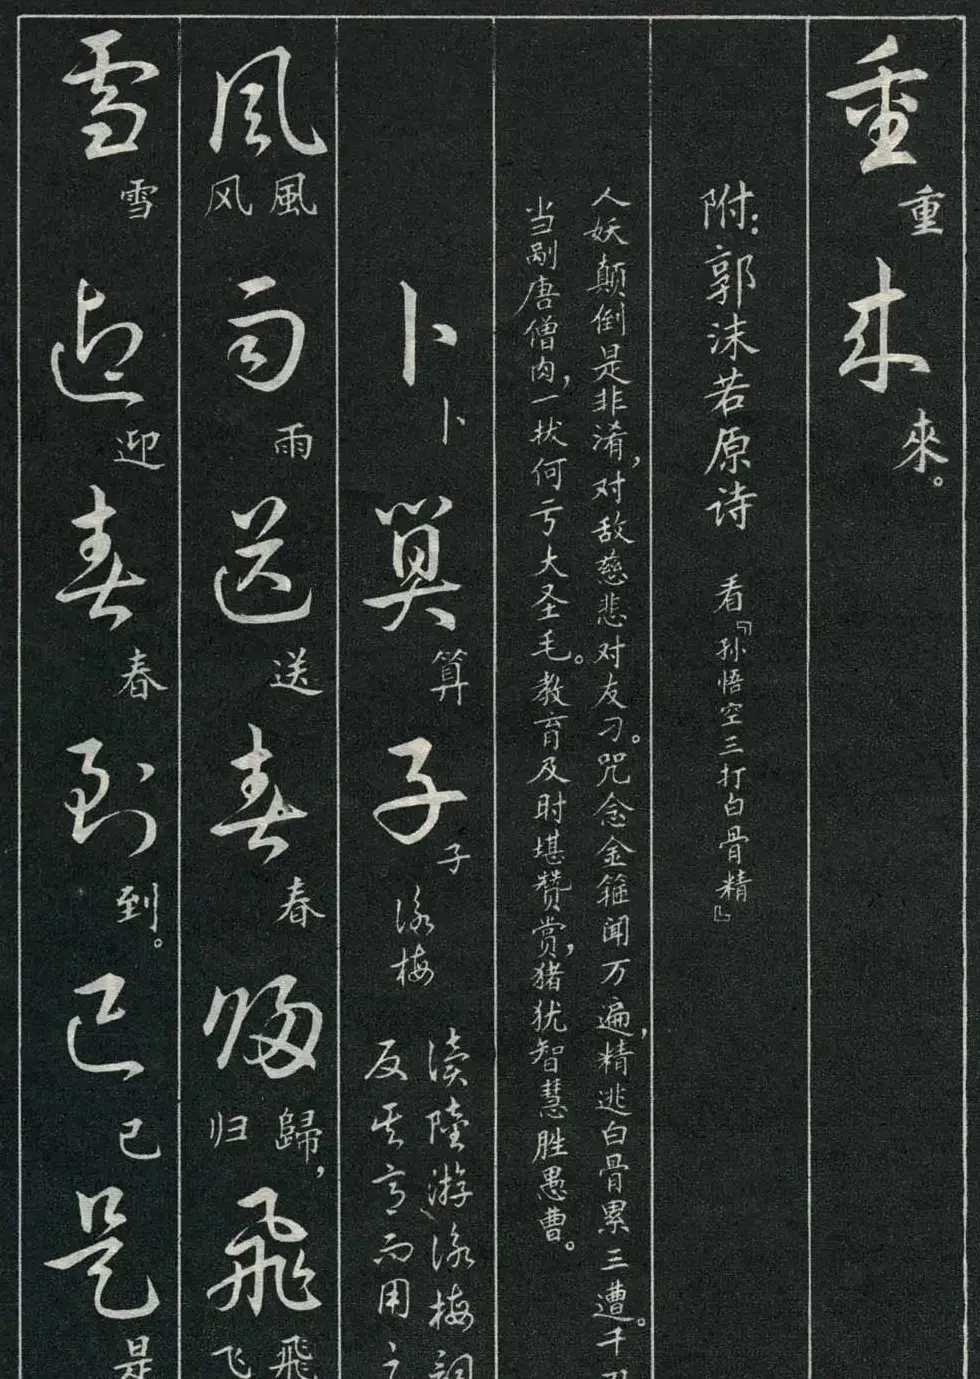 重重来來。
附：郭沫若原诗 看『孙悟空三打白骨精』
人妖颠倒是非淆，对敌慈悲对友刁。咒念金箍闻万遍，精逃白骨累三遭。千
当剐唐僧肉，一拔何亏大圣毛。教育及时堪赞赏，猪犹智慧胜愚曹。
卜卜算算子子咏梅
读陸游咏梅詞
反其意而用之
風風风雨雨送送春春归歸，归飛飛飞
雪雪迎迎春春到到。已已是是